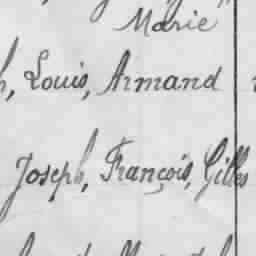 Marie
h, Louis, Armand
Joseph, François, Gilles